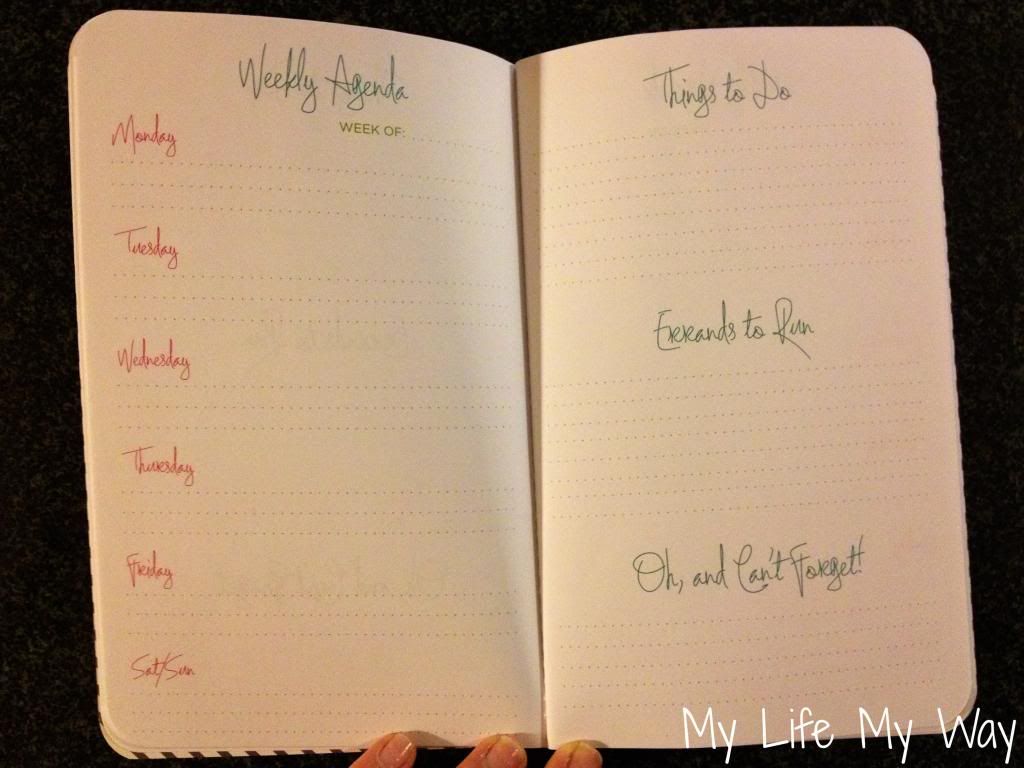 Weekly Agenda
WEEK OF:
Monday
Tuesday
Wednesday
Thursday
Friday
Sat/Sun
Things to Do
Errands to Run
Oh, and Can't Forget!
My Life My Way